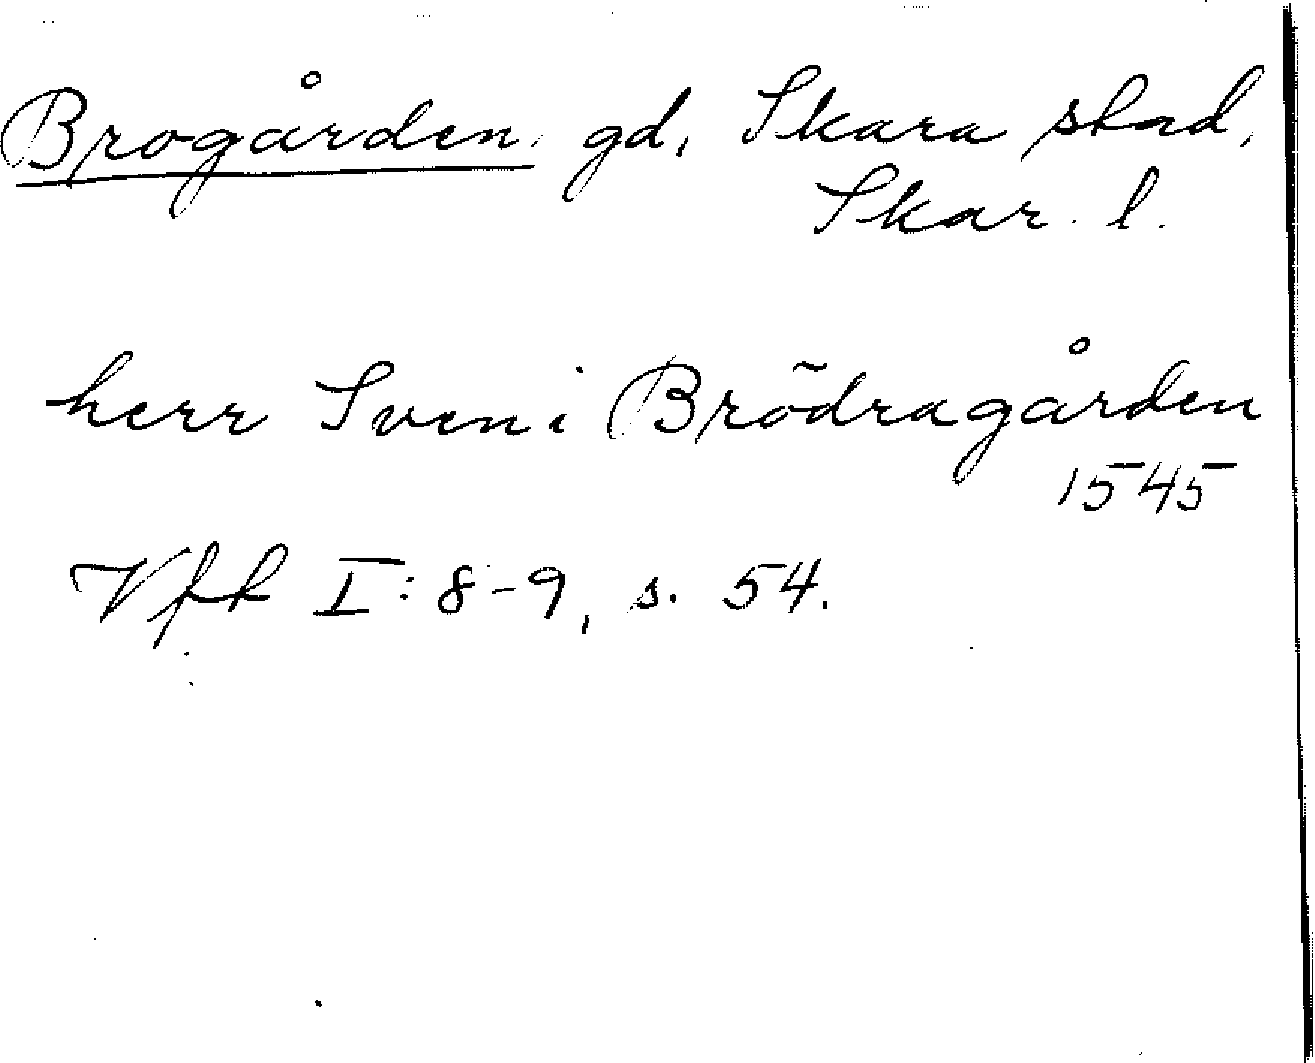 Brogården, gd, Skara stad,
Skar. l.
herr Sven i Brödragården
1545
Vft I: 8-9, s. 54.